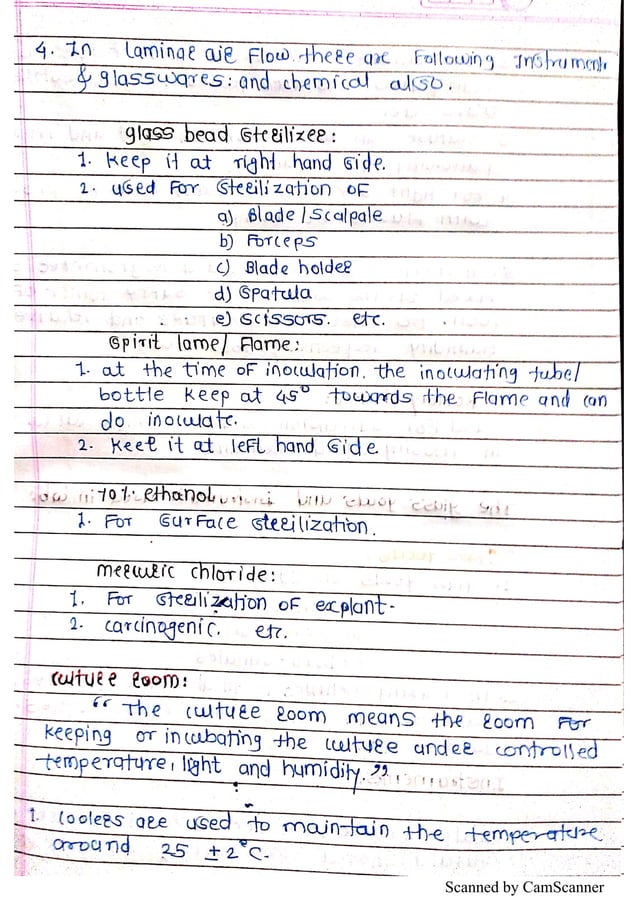 4. In laminae air Flow there are Following Instruments
& glasswares: and chemical also.
glass bead sterilizer:
1. Keep it at right hand side.
2. used For sterilization OF
a) Blade / Scalpale
b) Forceps
c) Blade holder
d) spatula
e) scissors. etc.
spirit lame/ Flame:
1. at the time OF inoculation. the inoculating tube/
bottle keep at 45° towards the Flame and can
do inoculate.
2. Keet it at leFt hand side
70% ethanol
1. For surFace sterilization.
mercuric chloride:
1. For sterilization OF explant.
2. carcinogenic. etc.
culture room:
" The culture room means the room For
keeping or incubating the culture under controlled
temperature, light and humidity."
1. coolers are used to maintain the temperature
around 25 ±2°C.
Scanned by CamScanner